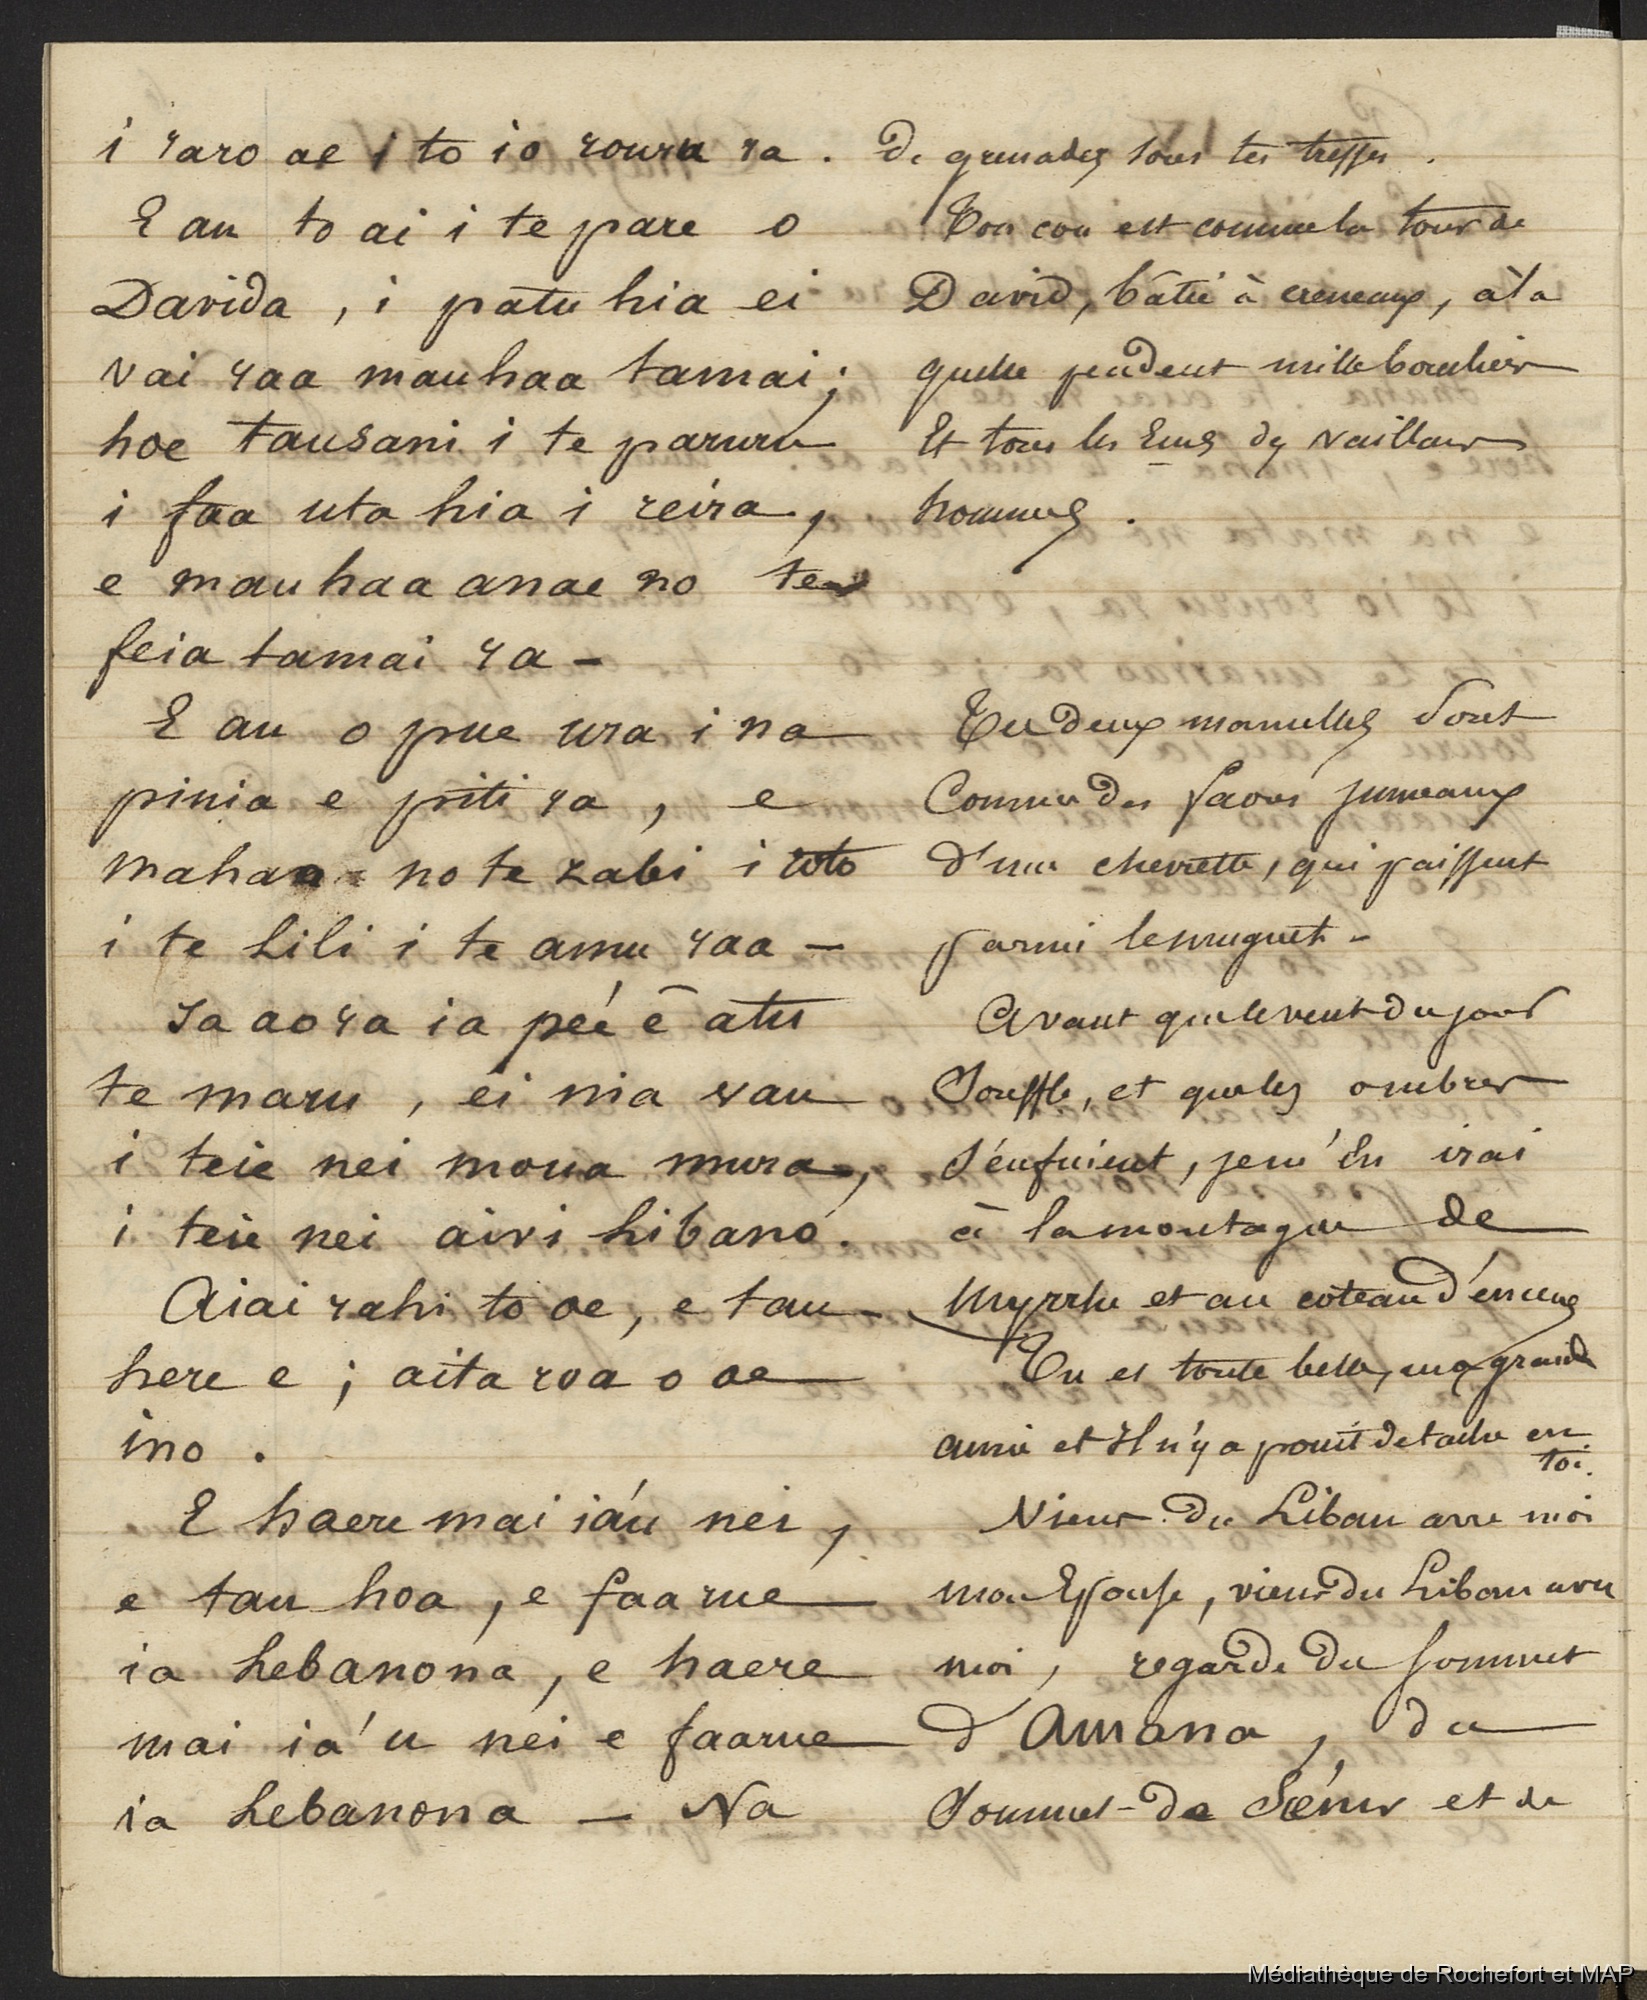 i raro ae i to io rouru ra.
E au to ai i te pare o
Davida, i patu hia ei
vai raa mau haa tamai;
hoe tausani i te paruru
i faa uta hia i reira,
e mau haa anae no te
feia tamai ra -
E au o pue ura i na
pinia e piti ra, e
mahaa no te zabi i roto
i te Lili i te amu raa -
Ia ao ra ia peé ē atu
te maru, ei nia vau
i teie nei moua mura,
i teie nei aivi Libano.
Aiai rahi to oe, e tau
here e; aita roa o oe
ino.
E haere mai iáu nei,
e tau hoa, e faarue
ia Lebanona, e haere
mai ia'u nei e faarue
ia Lebanona - Na
De grenades sous tes tresses.
Ton cou est comme la tour de
David, bâtie à creneaux, à la
quelle pendent mille boucliers
Et tous les Ecus des vaillans
hommes.
Tes deux mamelles sont
Comme des faons jumeaux
d'une chevrette, qui paissent
parmi le muguet -
Avant que le vent du jour
souffle, et que les ombres
s'enfuient, je m'en irai
à la montagne de
Myrrhe et au coteau d'encens
Tu es toute belle, ma grande
amie et Il n'y a point de tache en
toi.
Viens du Liban avec moi
mon Epouse, viens du Liban avec
moi, regarde du sommet
d'Amana, du
Sommet de Sénir et de
Médiathèque de Rochefort et MAP